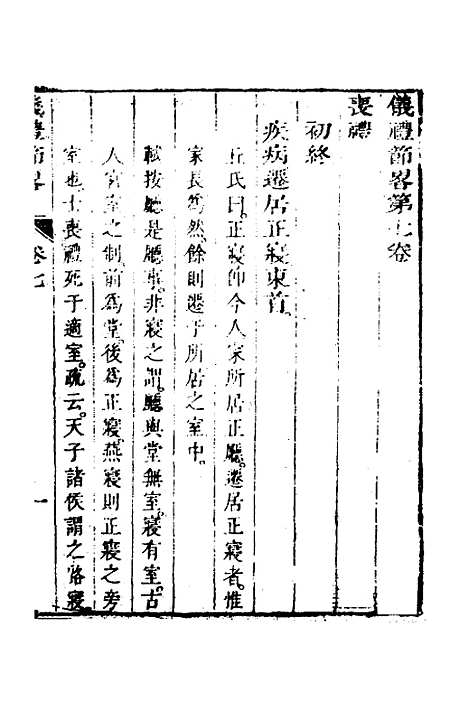 儀禮節畧第七卷
喪禮
初終
疾病遷居正寢東首
丘氏曰。正寢即今人家所居正廳。遷居正寢者。惟
家長為然。餘則遷于所居之室中。
軾按廳是廳事。非寢之謂。廳與堂無室。寢有室。古
人宮室之制。前為堂。後為正寢。燕寢則正寢之旁
室也。士喪禮死于適室。疏云。天子諸侯謂之路寢
儀禮節畧 卷七 一